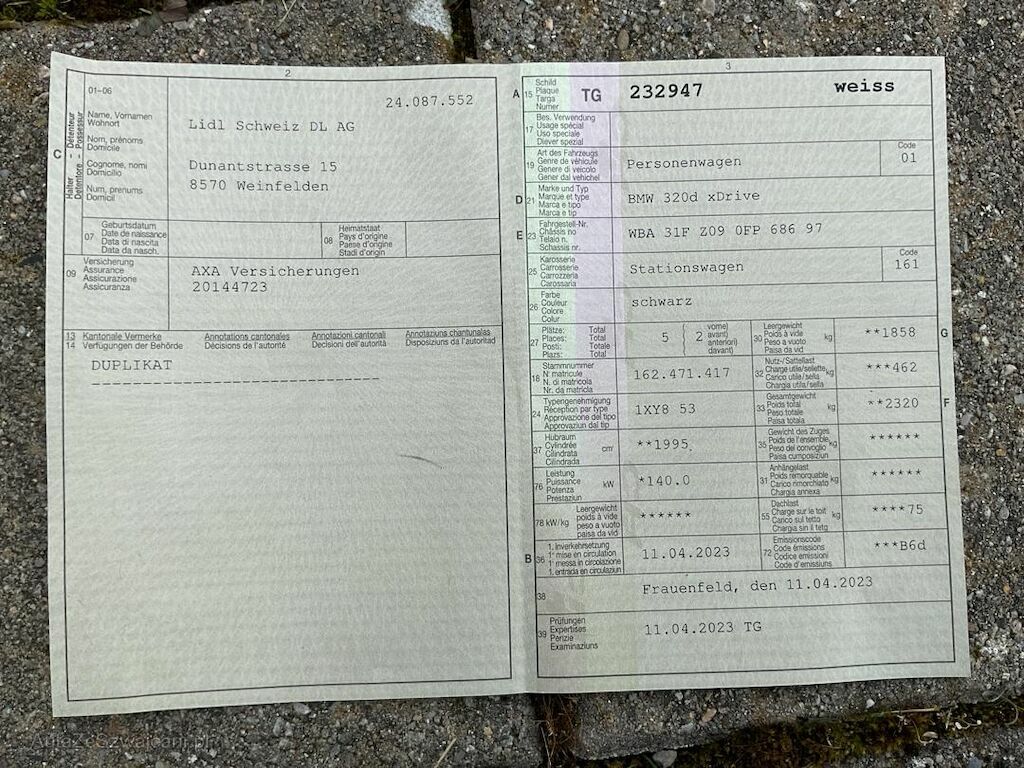 2
01-06
24.087.552
Name, Vornamen
Wohnort
Lidl Schweiz DL AG
Nom, prénoms
Domicile
Cognome, nomi
Domicilio
Dunantstrasse 15
Num, prenums
Domicil
8570 Weinfelden
C
Halter - Détenteur
Detentore - Possessur
07
Geburtsdatum
Date de naissance
Data di nascita
Data da nasch.
08
Heimatstaat
Pays d'origine
Paese d'origine
Stadi d'origin
09
Versicherung
Assurance
Assicurazione
Assicuranza
AXA Versicherungen
20144723
13 Kantonale Vermerke Annotations cantonales Annotazioni cantonali Annotaziuns chantunalas
14 Verfügungen der Behörde Décisions de l'autorité Decisioni dell'autorità Disposiziuns da l'autoritad
DUPLIKAT
3
A 15
Schild
Plaque
Targa
Numer
TG 232947 weiss
17
Bes. Verwendung
Usage spécial
Uso speciale
Diever spezial
19
Art des Fahrzeugs
Genre de véhicule
Genere di veicolo
Gener dal vehichel
Personenwagen
Code
01
D 21
Marke und Typ
Marque et type
Marca e tipo
Marca e tip
BMW 320d xDrive
E 23
Fahrgestell-Nr.
Châssis no
Telaio n.
Schassis nr.
WBA 31F Z09 0FP 686 97
25
Karosserie
Carrosserie
Carrozzeria
Carossaria
Stationswagen
Code
161
26
Farbe
Couleur
Colore
Colur
schwarz
27
Plätze: Total
Places: Total
Posti: Totale
Plazs: Total
5 ( 2
vorne)
avant)
anteriori)
davant)
30
Leergewicht
Poids à vide
Peso a vuoto
Paisa da vid
kg
**1858
G
18
Stammnummer
N° matricule
N. di matricola
Nr. da matricla
162.471.417
32
Nutz-/Sattellast
Charge utile/sellette
Carico utile/sella
Chargia utila/sella
kg
***462
24
Typengenehmigung
Réception par type
Approvazione del tipo
Approvaziun dal tip
1XY8 53
33
Gesamtgewicht
Poids total
Peso totale
Paisa totala
kg
**2320
F
37
Hubraum
Cylindrée
Cilindrata
Cilindrada
cm³
**1995
35
Gewicht des Zuges
Poids de l'ensemble
Peso del convoglio
Paisa cumposiziun
kg
******
76
Leistung
Puissance
Potenza
Prestaziun
kW
*140.0
31
Anhängelast
Poids remorquable
Carico rimorchiato
Chargia annexa
kg
******
78 kW/kg
Leergewicht
poids à vide
peso a vuoto
paisa da vid
******
55
Dachlast
Charge sur le toit
Carico sul tetto
Chargia sin il tetg
kg
****75
B 36
1. Inverkehrsetzung
1re mise en circulation
1a messa in circolazione
1. entrada en circulaziun
11.04.2023
72
Emissionscode
Code émissions
Codice emissioni
Code d'emissiuns
***B6d
38
Frauenfeld, den 11.04.2023
39
Prüfungen
Expertises
Perizie
Examinaziuns
11.04.2023 TG